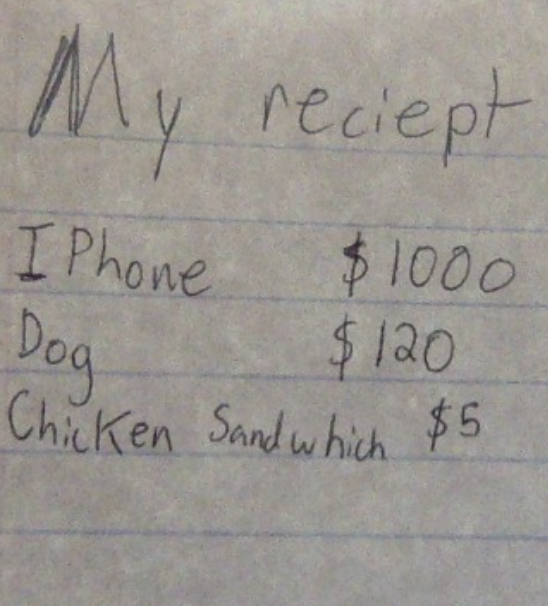 My reciept
I Phone $1000
Dog $120
Chicken Sandwhich $5